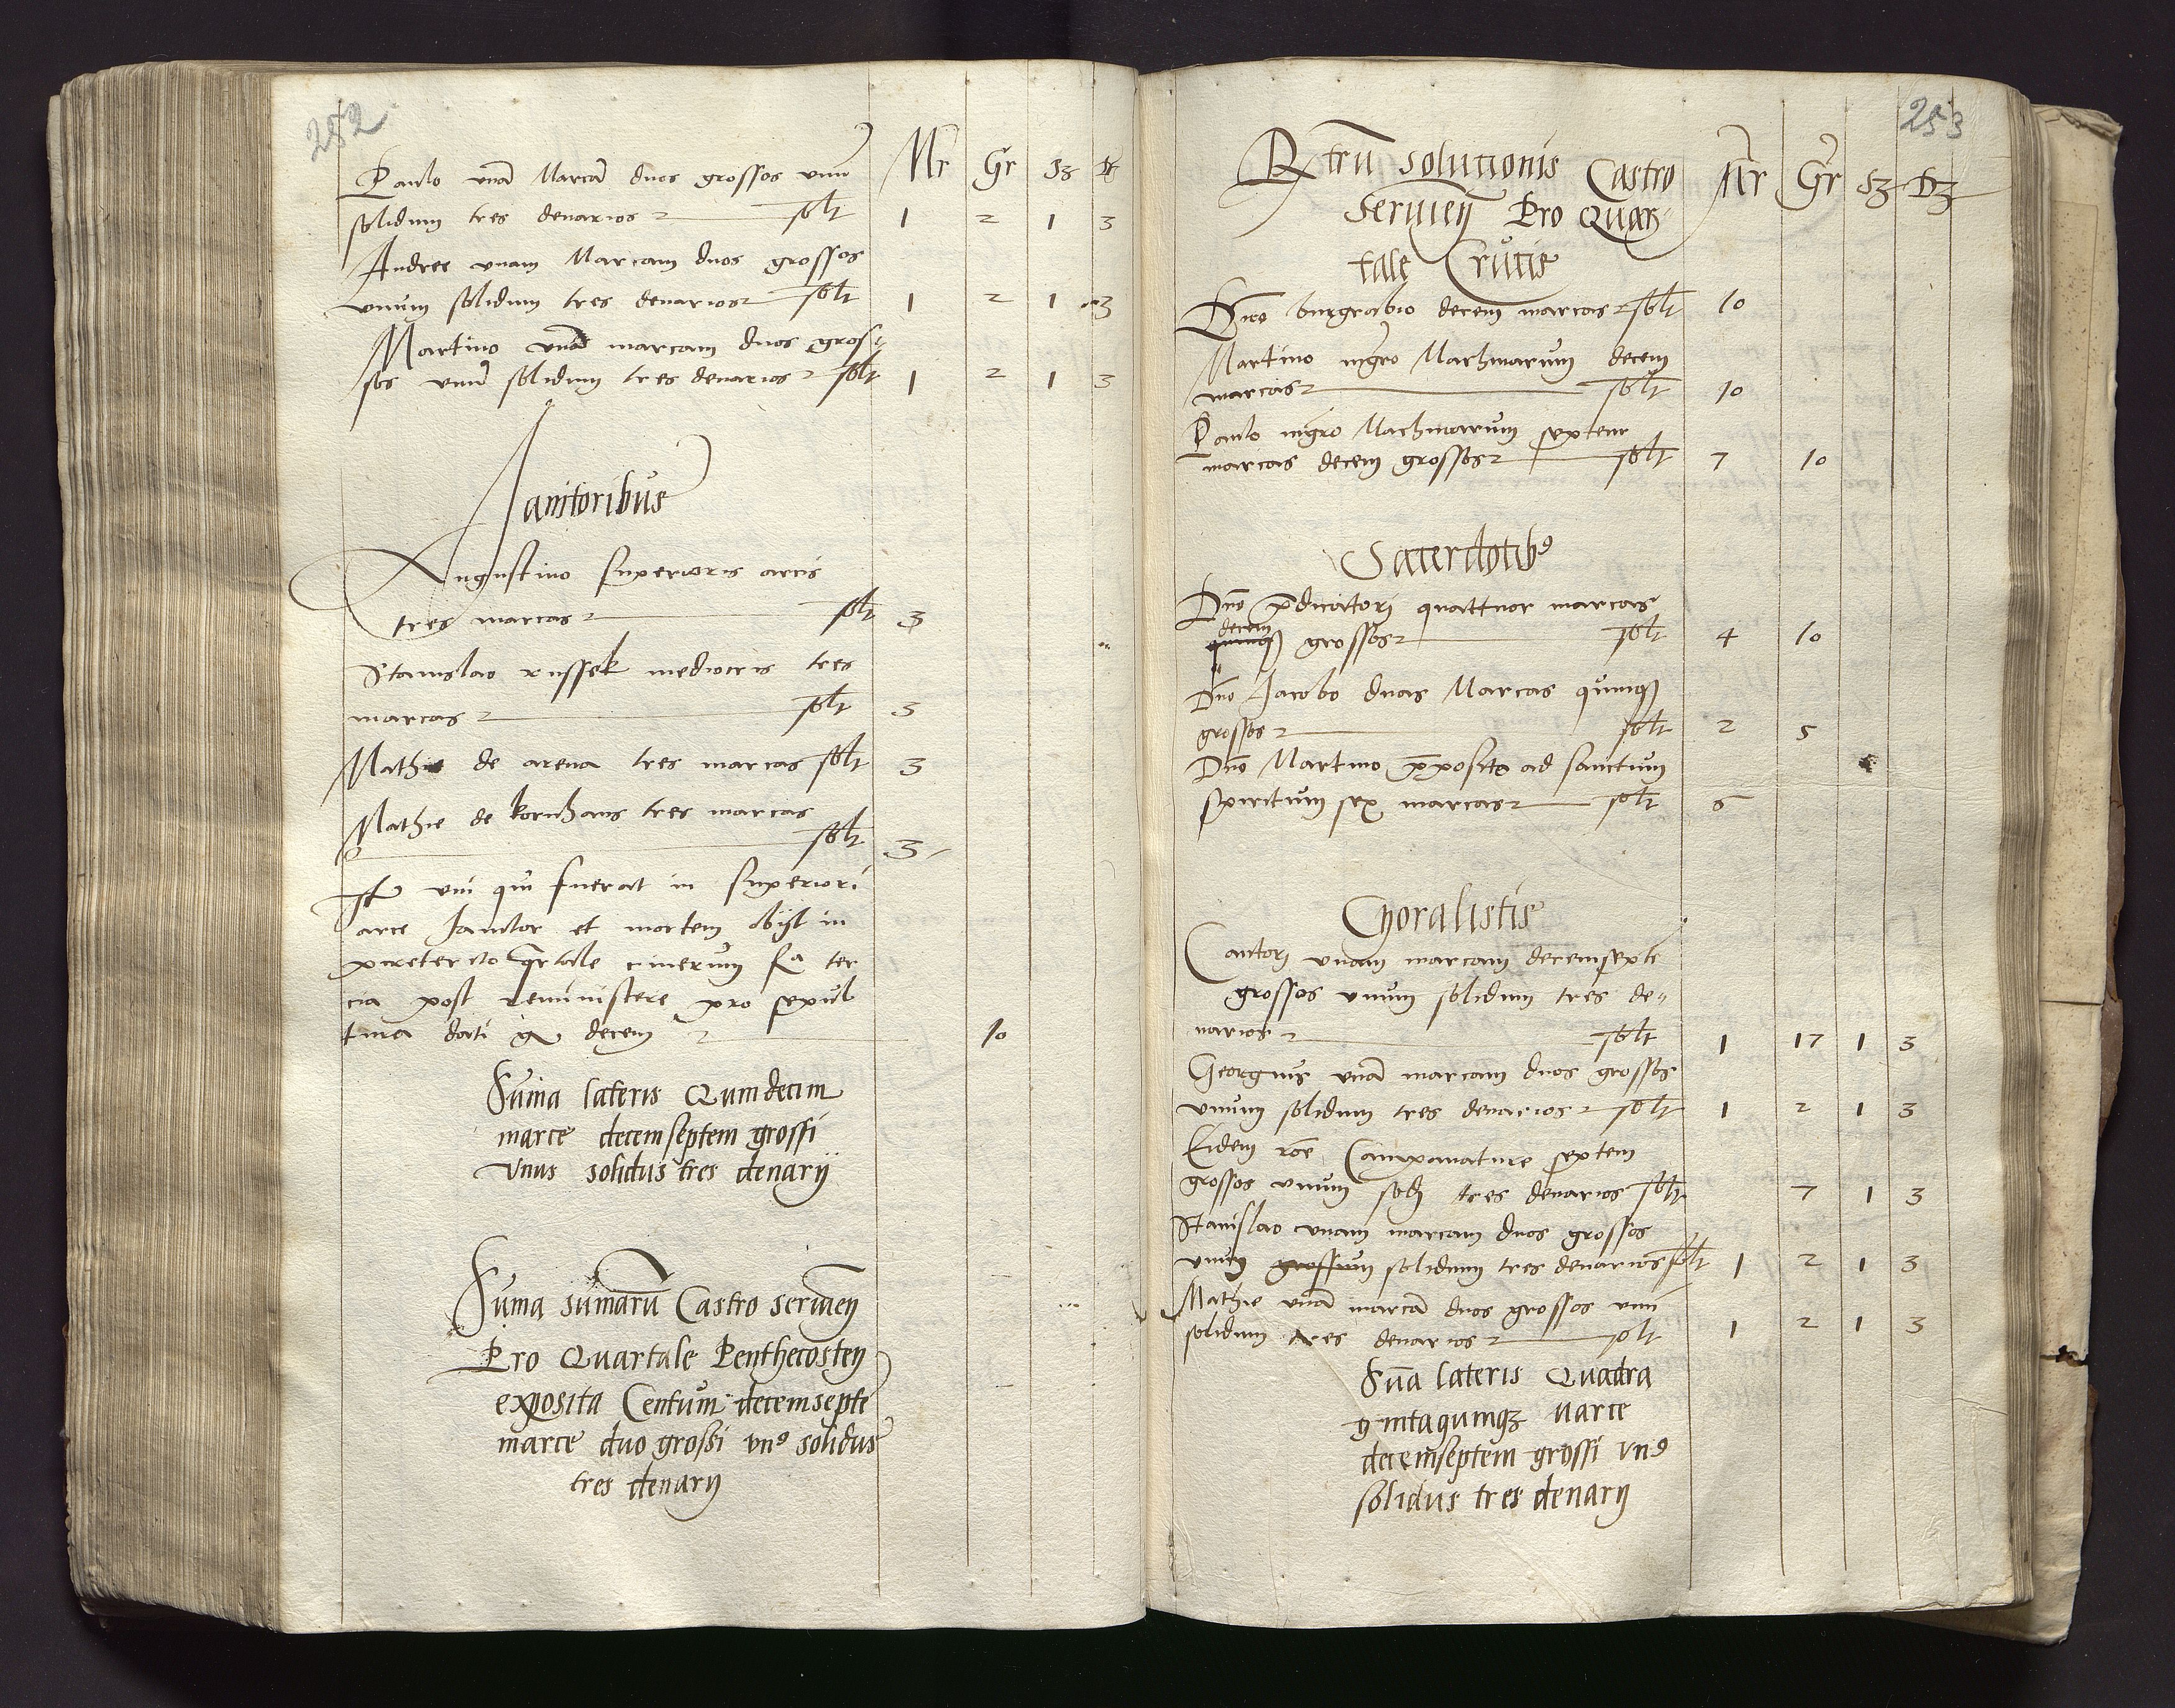 252
Mr Gr Sz D
Paulo unā Marcā duos grossos unū
solidum tres denarios solt 1 2 1 3
Andree unam Marcam duos grossos
unum solidum tres denarios solt 1 2 1 3
Martino unā marcam duos gros-
sos unū solidum tres denarios solt 1 2 1 3
Janitoribus
Augustino superioris arcis
tres marcas solt 3
Stanislao russek mediocris tres
marcas solt 3
Mathie de arena tres marcas solt 3
Mathie de kornhaus tres marcas
solt 3
Itē uni qui fuerat in superiori
arce Janitor et mortem obijt in
preterito q̄rtale cinerum fa ter
cia post reminiscere pro sepul
tura dati gr decem 10
Sūma lateris Quindecim
marce decemseptem grossi
unus solidus tres denarij
Sūma sūmarū Castro servien
Pro Quartale Penthecosten
exposita Centum decemseptē
marce duo grossi unꝰ solidus
tres denarij
253
Rtrū solucionis Castro
servien Pro Quar-
tale Crucis
Mr Gr Sz Dz
Dno burgrabio decem marcas solt 10
Martino nigro Machinarum decem
marcas solt 10
Paulo nigro Machinarum septem
marcas decem grossos solt 7 10
Sacerdotibꝰ
Dno p̄dicatori quattuor marcas
decem
quinqꝫ grossos solt 4 10
Dno Jacobo duas Marcas quinqꝫ
grossos solt 2 5
Dno Martino p̄posito ad sanctum
spiritum sex marcas solt 6
Choralistis
Cantori unam marcam decemseptē
grossos unum solidum tres de-
narios solt 1 17 1 3
Georgius unā marcam duos grossos
unum solidum tres denarios solt 1 2 1 3
Eidem rōe Campanature septem
grossos unum sod tres denarios solt 7 1 3
Stanislao unam marcam duos grossos
unum grossum solidum tres denarios solt 1 2 1 3
Mathie unā marcā duos grossos unū
solidum tres denarios solt 1 2 1 3
Sūa lateris Quadra
gintaquinqꝫ marce
decemseptem grossi unꝰ
solidus tres denarij